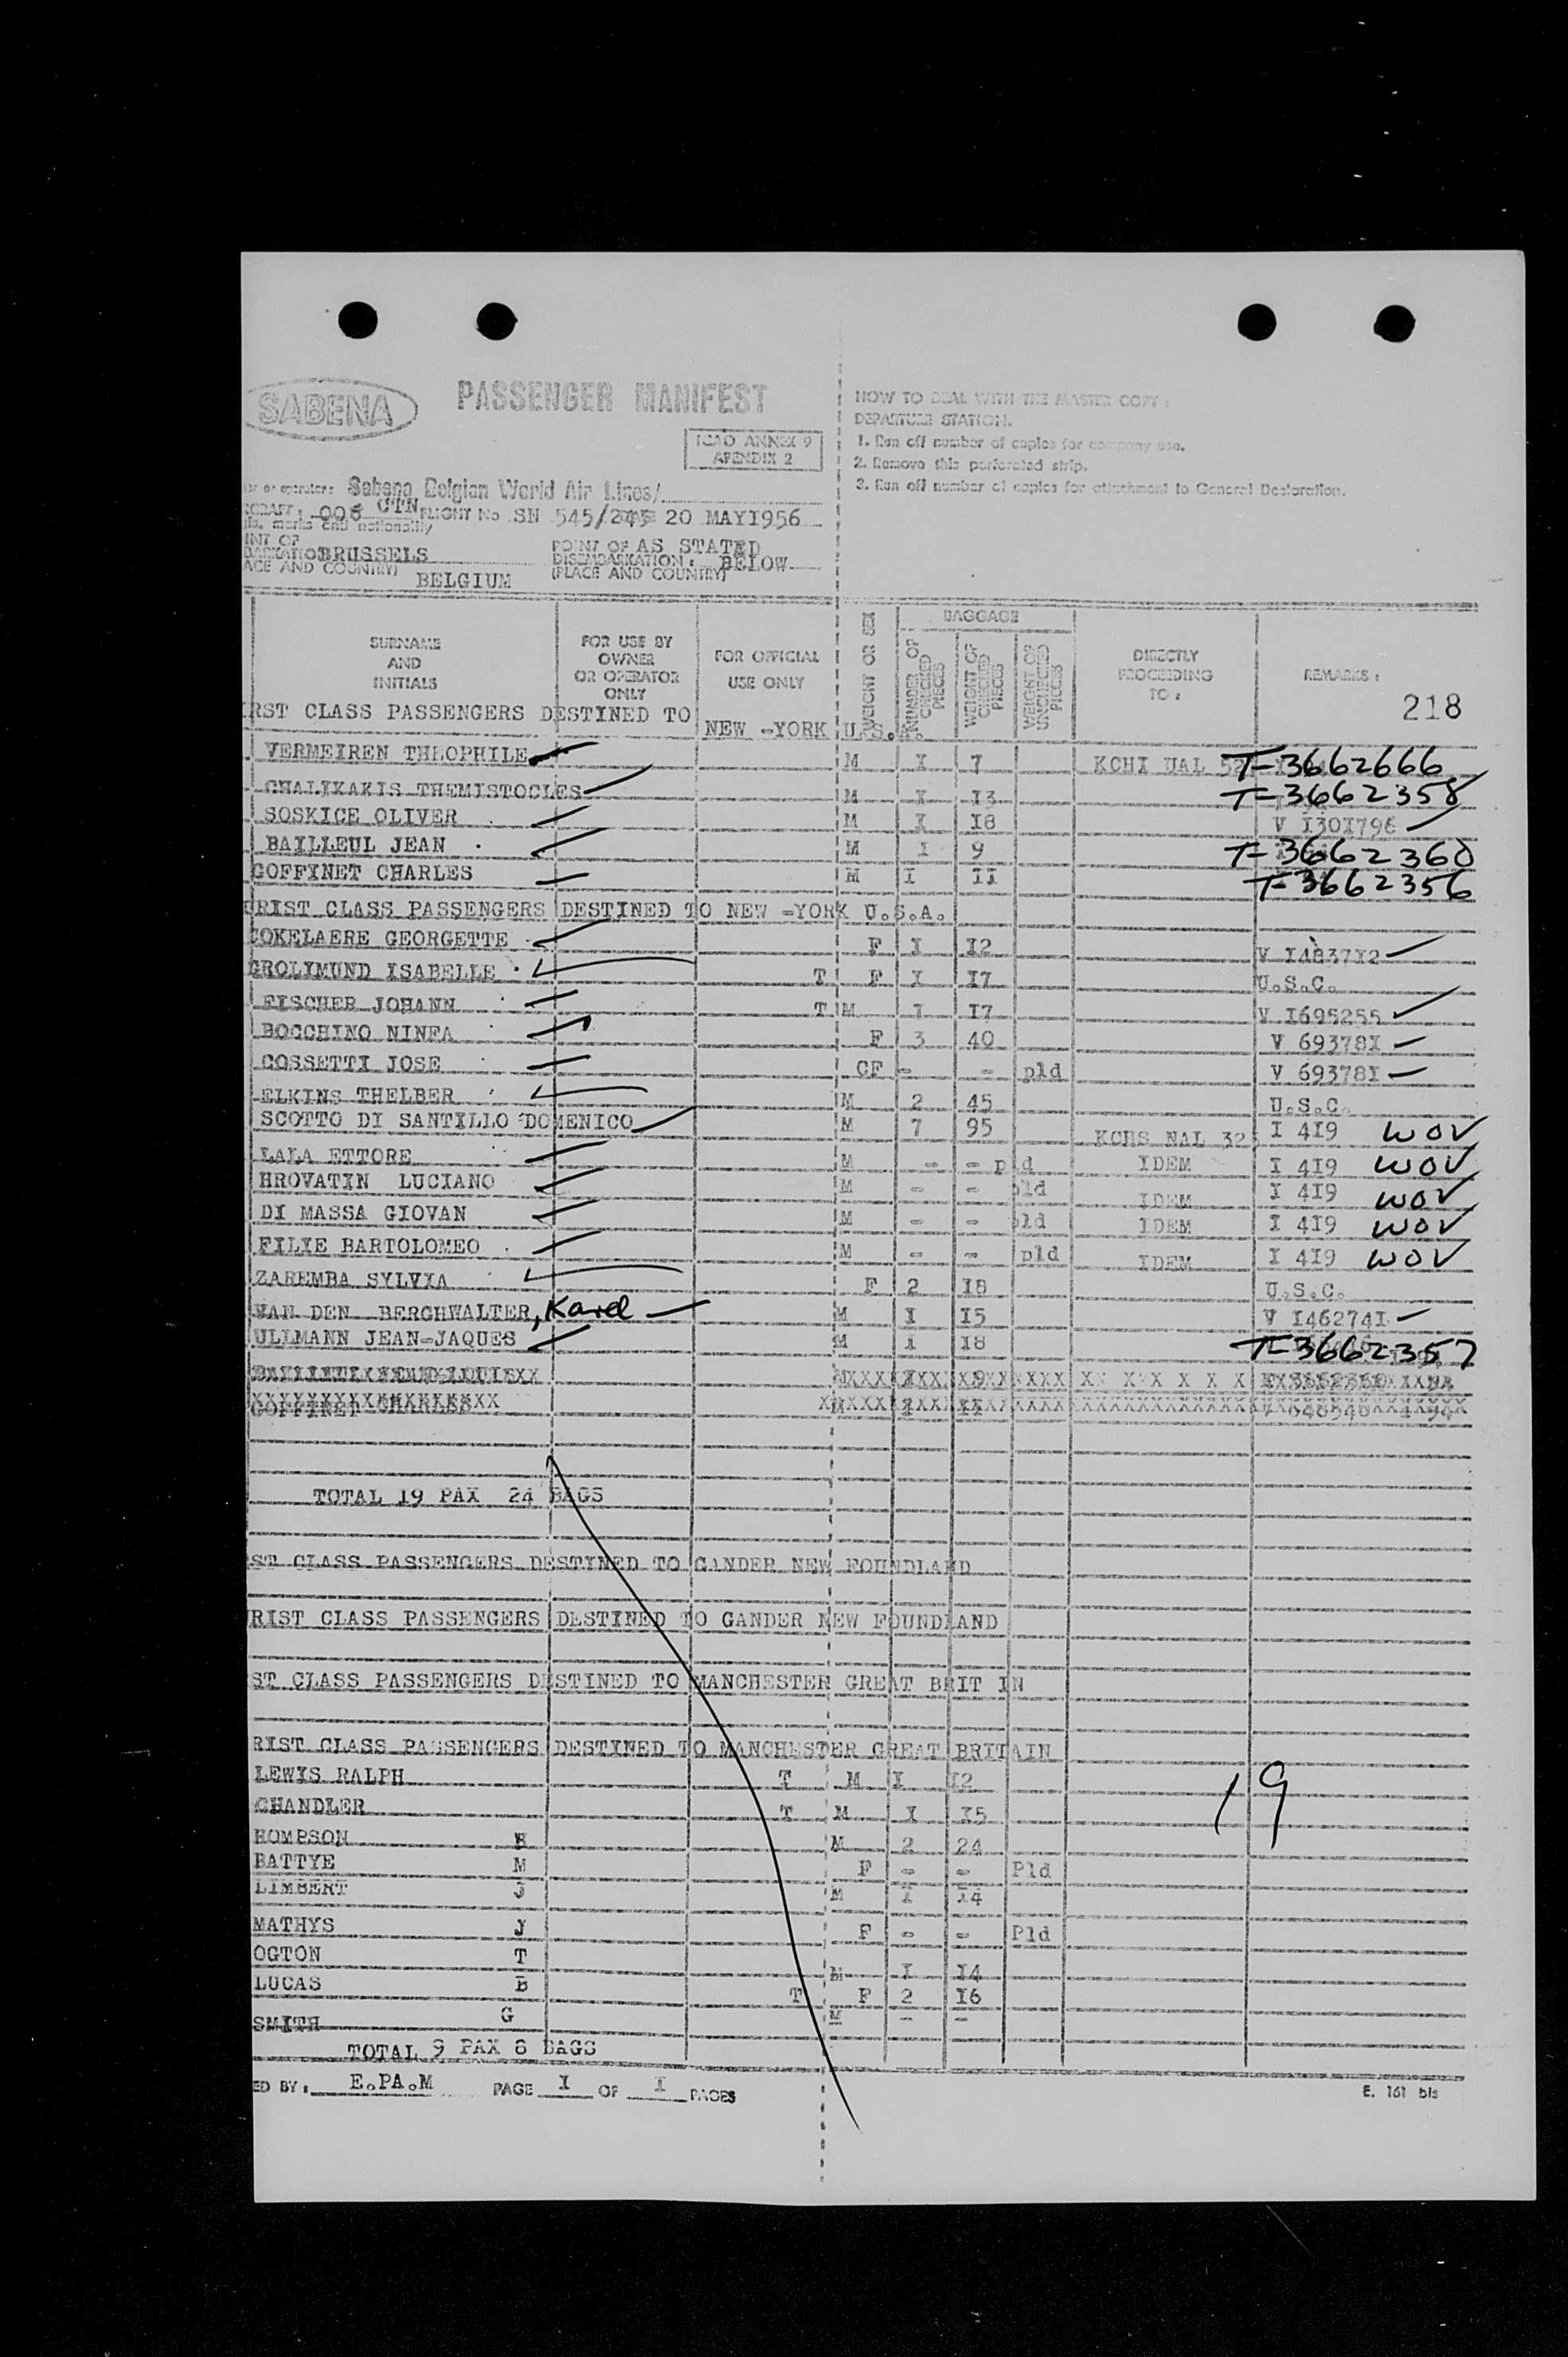 SABENA
PASSENGER MANIFEST
ICAO ANNEX 9
APENDIX 2
HOW TO DEAL WITH THE MASTER COPY :
DEPARTURE STATION.
1. Run off number of copies for company use.
2. Remove this perforated strip.
3. Run off number of copies for attachment to General Declaration.
er or operator: Sabena Belgian World Air Lines/
CRAFT: 006 CTN FLIGHT No SN 545/245 20 MAYI956
marks and nationality
INT OF
BRUSSELS
ACE AND COUNTRY) BELGIUM
POINT OF AS STATED
DISEMBARKATION: BELOW
(PLACE AND COUNTRY)
SURNAME AND INITIALS
FOR USE BY OWNER OR OPERATOR ONLY
FOR OFFICIAL USE ONLY
WEIGHT OR SEX
BAGGAGE
NUMBER OF CHECKED PIECES
WEIGHT OF CHECKED PIECES
WEIGHT OF UNCHECKED PIECES
DIRECTLY PROCEEDING TO :
REMARKS :
218
IRST CLASS PASSENGERS DESTINED TO NEW -YORK U.S.A.
VERMEIREN THEOPHILE M I 7 KCHI UAL T-3662666
CHALIKAKIS THEMISTOCLES M I I3 T-3662358
SOSKICE OLIVER M I I8 V I30I796
BAILLEUL JEAN M I 9 T-3662360
GOFFINET CHARLES M I II T-3662356
RIST CLASS PASSENGERS DESTINED TO NEW -YORK U.S.A.
COKELAERE GEORGETTE F I I2 V I4837I2
GROLIMUND ISABELLE T F I I7 U.S.C.
FISCHER JOHANN T M I I7 V I695255
BOCCHINO NINFA F 3 40 V 69378I
COSSETTI JOSE CF - - pld V 69378I
ELKINS THELBER M 2 45 U.S.C.
SCOTTO DI SANTILLO DOMENICO M 7 95 KCHS NAL 32 I 4I9 WOV
LALA ETTORE M - - pld IDEM I 4I9 WOV
HROVATIN LUCIANO M - - pld IDEM I 4I9 WOV
DI MASSA GIOVAN M - - pld IDEM I 4I9 WOV
FILIE BARTOLOMEO M - - pld IDEM I 4I9 WOV
ZAREMBA SYLVIA F 2 I8 U.S.C.
VAN DEN BERGHWALTER, Karel M I I5 V I46274I
ULLMANN JEAN-JAQUES M I I8 T-3662357
GOFFINET CHARLES
TOTAL I9 PAX 24 BAGS
ST CLASS PASSENGERS DESTINED TO GANDER NEW FOUNDLAND
RIST CLASS PASSENGERS DESTINED TO GANDER NEW FOUNDLAND
ST CLASS PASSENGERS DESTINED TO MANCHESTER GREAT BRIT IN
RIST CLASS PASSENGERS DESTINED TO MANCHESTER GREAT BRITAIN
LEWIS RALPH T M I I2
19
CHANDLER T M I I5
HOMPSON H M 2 24
BATTYE M F - - Pld
LIMBERT J M I I4
MATHYS J F - - Pld
OGTON T M I I4
LUCAS B T F 2 I6
SMITH G M - -
TOTAL 9 PAX 8 BAGS
ED BY: E.PA.M PAGE I OF I PAGES
E. 161 bis